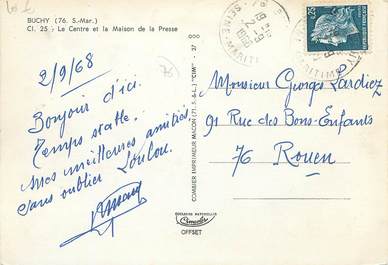 BUCHY (76. S.-Mar.)
Cl. 25 : Le Centre et la Maison de la Presse
2/9/68
Bonjour d'ici.
Temps stable.
Mes meilleures amitiés
sans oublier Loulou.
COMBIER IMPRIMEUR MACON (71, S.-&-L.) "CIM" - 27
2-9
1968
SEINE MARITI
0,25
Monsieur Georges Lardiez
91 Rue des Bons-Enfants
76 Rouen
OFFSET